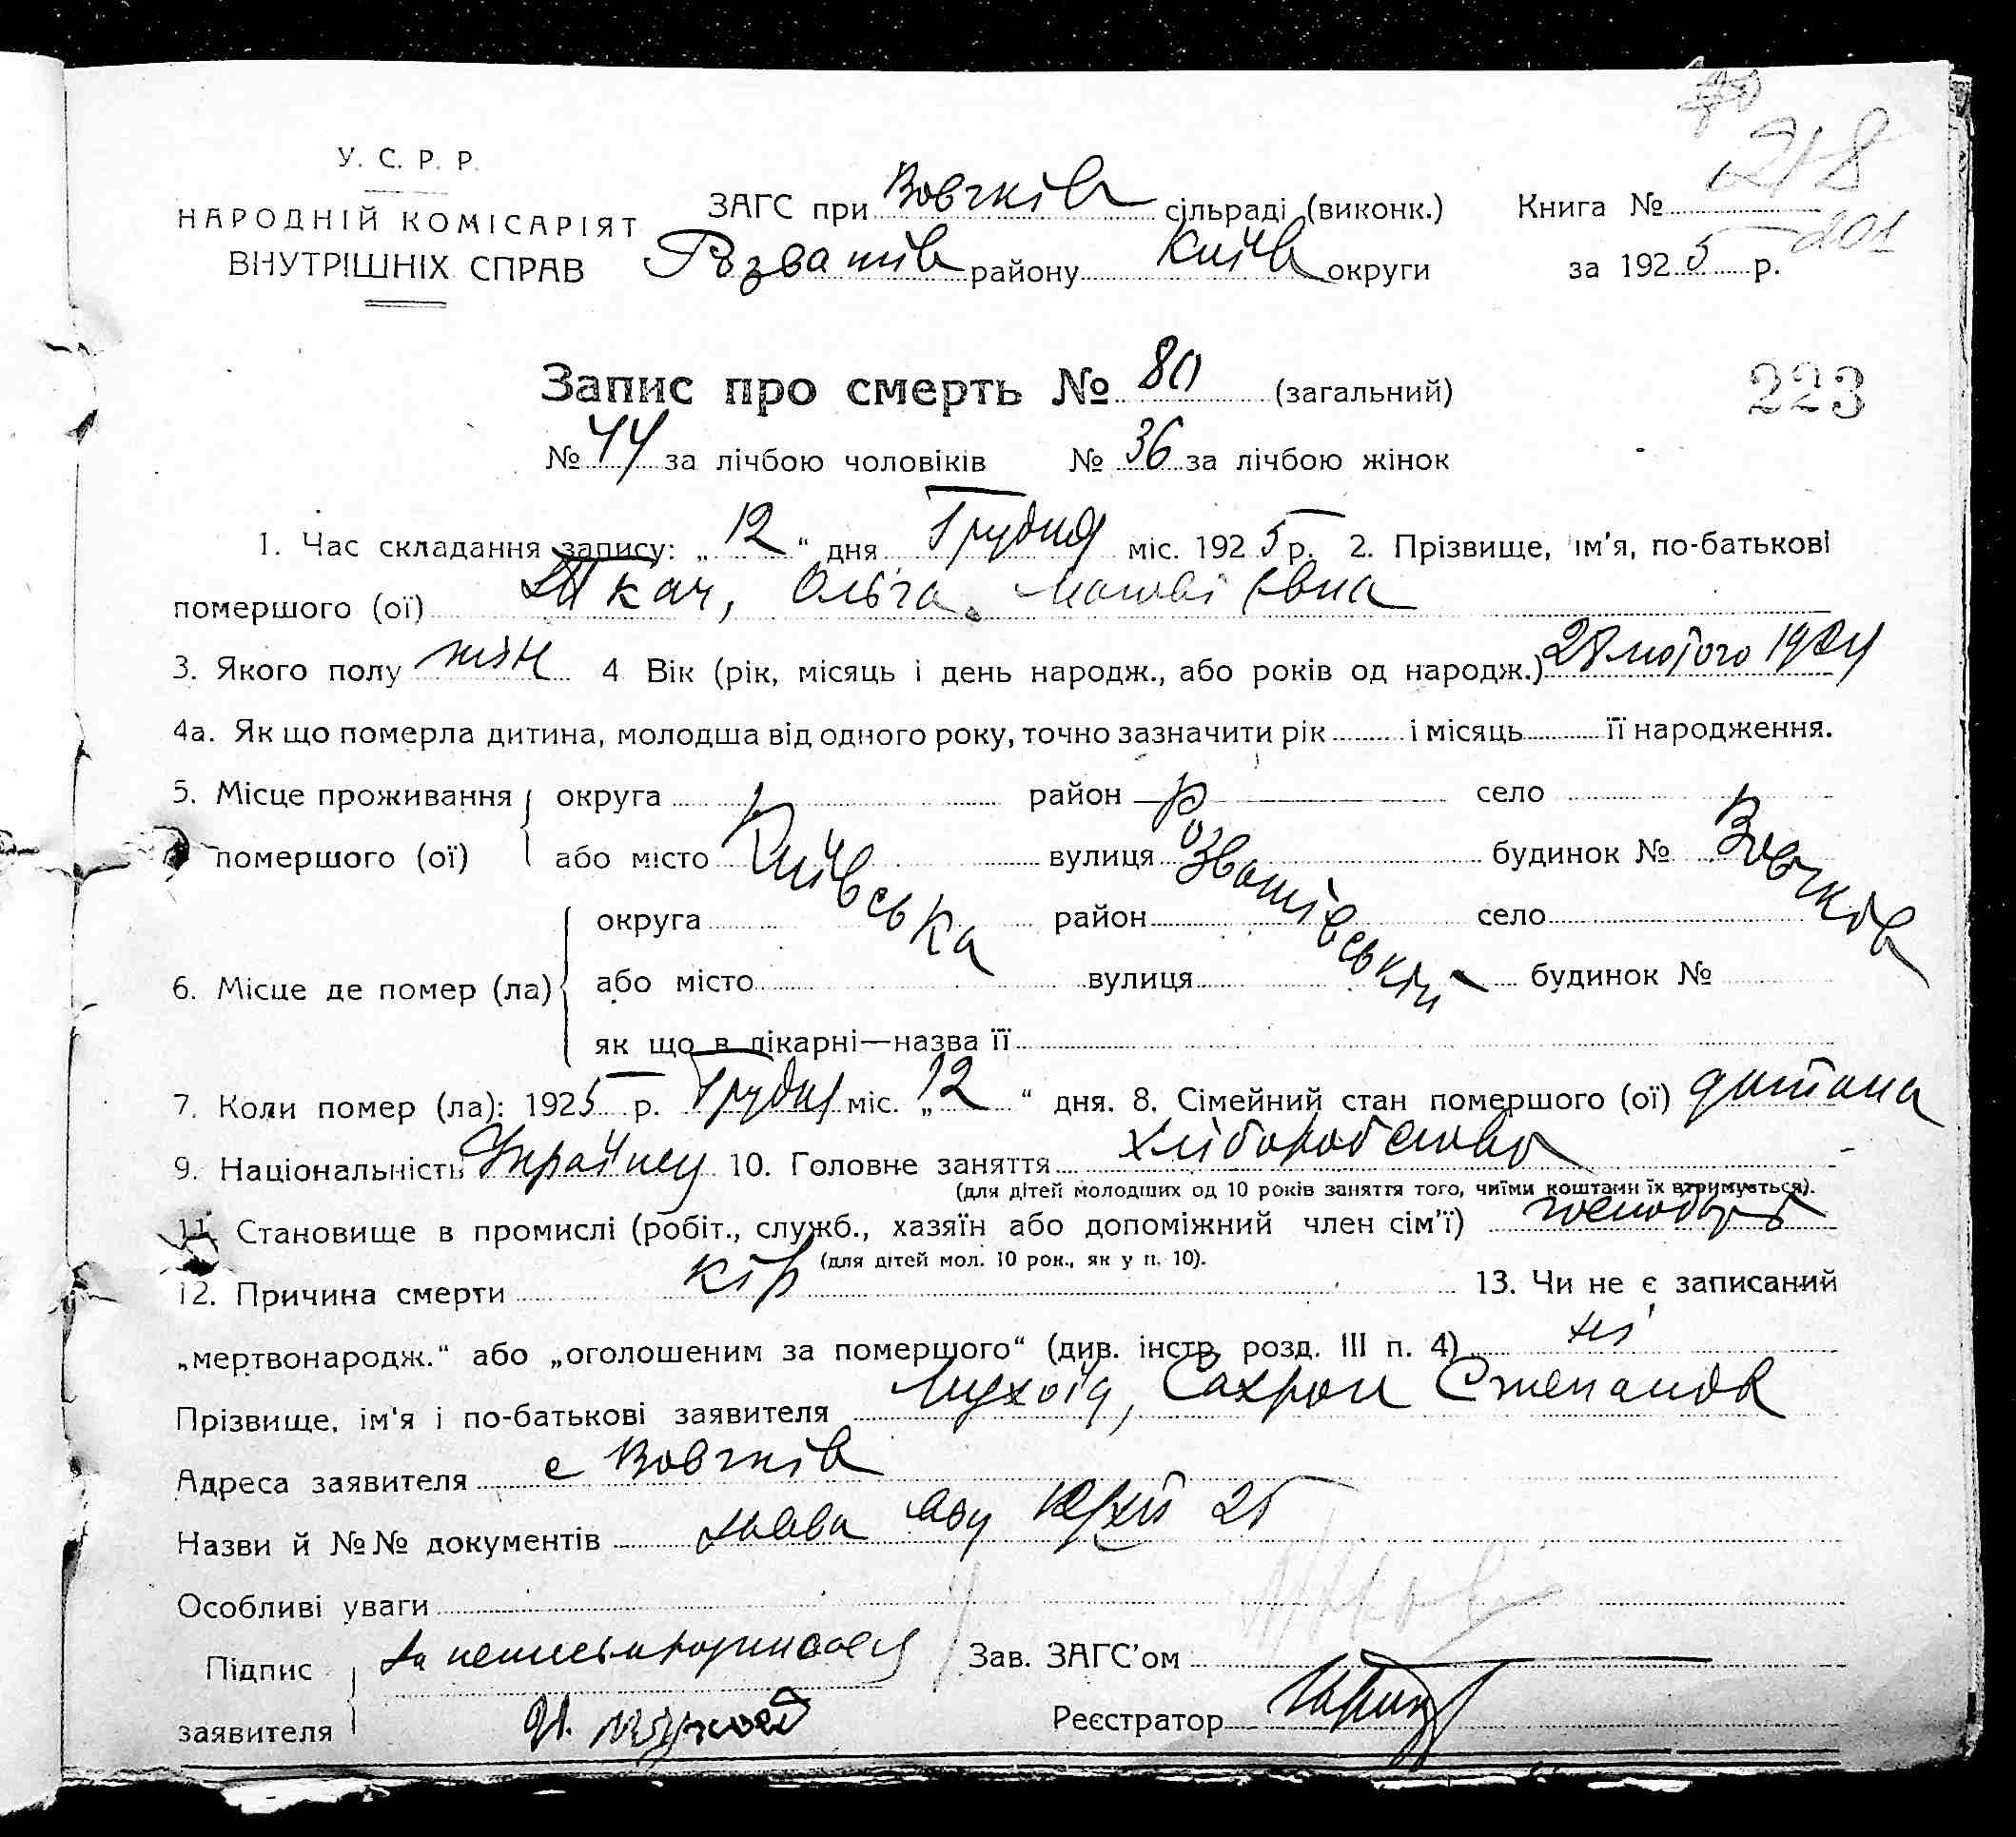 218
201
У. С. Р. Р.
НАРОДНІЙ КОМІСАРІЯТ
ВНУТРІШНІХ СПРАВ
ЗАГС при Вовчків сільраді (виконк.) Книга №
Розважів району Київ округи за 1925 р.
223
Запис про смерть № 80 (загальний)
№ 44 за лічбою чоловіків № 36 за лічбою жінок
1. Час складання запису: „ 12 “ дня Грудня міс. 1925 р. 2. Прізвище, ім'я, по-батькові
помершого (ої) Ткач, Ольга Матвіївна
3. Якого полу жін 4 Вік (рік, місяць і день народж., або років од народж.) 28 лютого 1924
4а. Як що померла дитина, молодша від одного року, точно зазначити рік і місяць її народження.
5. Місце проживання округа район село
помершого (ої) або місто вулиця будинок №
Київська Розважівський Вовчків
округа район село
6. Місце де помер (ла) або місто вулиця будинок №
як що в лікарні—назва її
7. Коли помер (ла): 1925 р. Грудня міс. „ 12 “ дня. 8. Сімейний стан помершого (ої) дитина
9. Національність 10. Головне заняття хліборобство
(для дітей молодших од 10 років заняття того, чиїми коштами їх втримується).
11. Становище в промислі (робіт., служб., хазяїн або допоміжний член сім'ї) господар
(для дітей мол. 10 рок., як у п. 10).
12. Причина смерти кір 13. Чи не є записаний
„мертвонародж.“ або „оголошеним за помершого“ (див. інстр. розд. III п. 4) ні
Прізвище, ім'я і по-батькові заявителя Мухоїд, Сахрон Степанов
Адреса заявителя с Вовчків
Назви й №№ документів
Особливі уваги
Підпис за неписьменного Зав. ЗАГС'ом
заявителя Мухоед Реєстратор